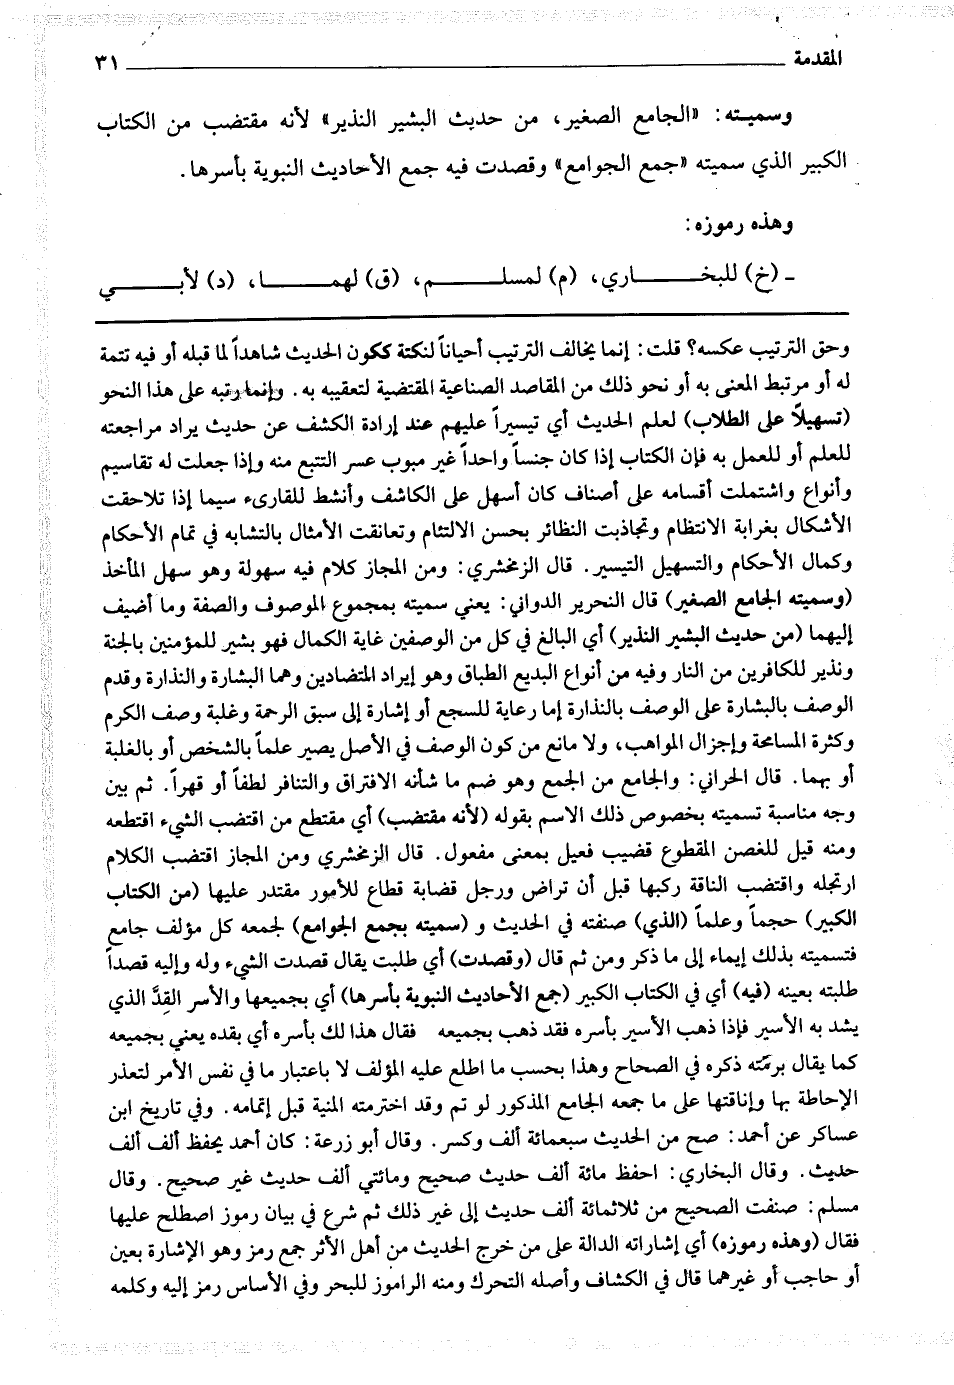 المقدمة ٣١
وسميته: «الجامع الصغير، من حديث البشير النذير» لأنه مقتضب من الكتاب
الكبير الذي سميته «جمع الجوامع» وقصدت فيه جمع الأحاديث النبوية بأسرها.
وهذه رموزه:
ـ (خ) للبخـــــاري، (م) لمسلـــــم، (ق) لهمـــــا، (د) لأبـــــي
وحق الترتيب عكسه؟ قلت: إنما يخالف الترتيب أحياناً لنكتة ككون الحديث شاهداً لما قبله أو فيه تتمة
له أو مرتبط المعنى به أو نحو ذلك من المقاصد الصناعية المقتضية لتعقيبه به. وإنما رتبه على هذا النحو
(تسهيلاً على الطلاب) لعلم الحديث أي تيسيراً عليهم عند إرادة الكشف عن حديث يراد مراجعته
للعلم أو للعمل به فإن الكتاب إذا كان جنساً واحداً غير مبوب عسر التتبع منه وإذا جعلت له تقاسيم
وأنواع واشتملت أقسامه على أصناف كان أسهل على الكاشف وأنشط للقارىء سيما إذا تلاحقت
الأشكال بغرابة الانتظام وتجاذبت النظائر بحسن الالتئام وتعانقت الأمثال بالتشابه في تمام الأحكام
وكمال الأحكام والتسهيل التيسير. قال الزمخشري: ومن المجاز كلام فيه سهولة وهو سهل المأخذ
(وسميته الجامع الصغير) قال النحرير الدواني: يعني سميته بمجموع الموصوف والصفة وما أضيف
إليهما (من حديث البشير النذير) أي البالغ في كل من الوصفين غاية الكمال فهو بشير للمؤمنين بالجنة
ونذير للكافرين من النار وفيه من أنواع البديع الطباق وهو إيراد المتضادين وهما البشارة والنذارة وقدم
الوصف بالبشارة على الوصف بالنذارة إما رعاية للسجع أو إشارة إلى سبق الرحمة وغلبة وصف الكرم
وكثرة المسامحة وإجزال المواهب، ولا مانع من كون الوصف في الأصل يصير علماً بالشخص أو بالغلبة
أو بهما. قال الحراني: والجامع من الجمع وهو ضم ما شأنه الافتراق والتنافر لطفاً أو قهراً. ثم بين
وجه مناسبة تسميته بخصوص ذلك الاسم بقوله (لأنه مقتضب) أي مقتطع من اقتضب الشيء اقتطعه
ومنه قيل للغصن المقطوع قضيب فعيل بمعنى مفعول. قال الزمخشري ومن المجاز اقتضب الكلام
ارتجله واقتضب الناقة ركبها قبل أن تراض ورجل قضابة قطاع للأمور مقتدر عليها (من الكتاب
الكبير) حجماً وعلماً (الذي) صنفته في الحديث و (سميته بجمع الجوامع) لجمعه كل مؤلف جامع
فتسميته بذلك إيماء إلى ما ذكر ومن ثم قال (وقصدت) أي طلبت يقال قصدت الشيء وله وإليه قصداً
طلبته بعينه (فيه) أي في الكتاب الكبير (جمع الأحاديث النبوية بأسرها) أي بجميعها والأسر القِدَّ الذي
يشد به الأسير فإذا ذهب الأسير بأسره فقد ذهب بجميعه فقال هذا لك بأسره أي بقده يعني بجميعه
كما يقال برمّته ذكره في الصحاح وهذا بحسب ما اطلع عليه المؤلف لا باعتبار ما في نفس الأمر لتعذر
الإحاطة بها وإنافتها على ما جمعه الجامع المذكور لو تم وقد اخترمته المنية قبل إتمامه. وفي تاريخ ابن
عساكر عن أحمد: صح من الحديث سبعمائة ألف وكسر. وقال أبو زرعة: كان أحمد يحفظ ألف ألف
حديث. وقال البخاري: احفظ مائة ألف حديث صحيح ومائتي ألف حديث غير صحيح. وقال
مسلم: صنفت الصحيح من ثلاثمائة ألف حديث إلى غير ذلك ثم شرع في بيان رموز اصطلح عليها
فقال (وهذه رموزه) أي إشاراته الدالة على من خرج الحديث من أهل الأثر جمع رمز وهو الإشارة بعين
أو حاجب أو غيرهما قال في الكشاف وأصله التحرك ومنه الراموز للبحر وفي الأساس رمز إليه وكلمه